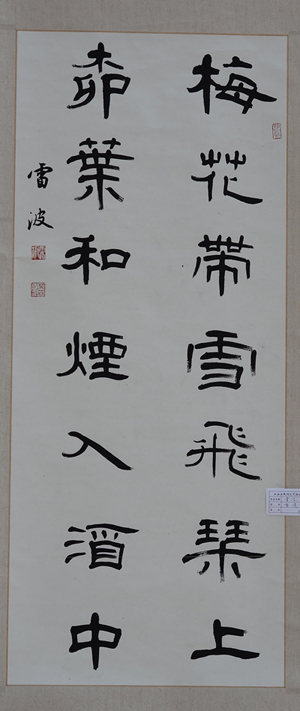 梅花帶雪飛琹上
柳葉和煙入酒中
雷波